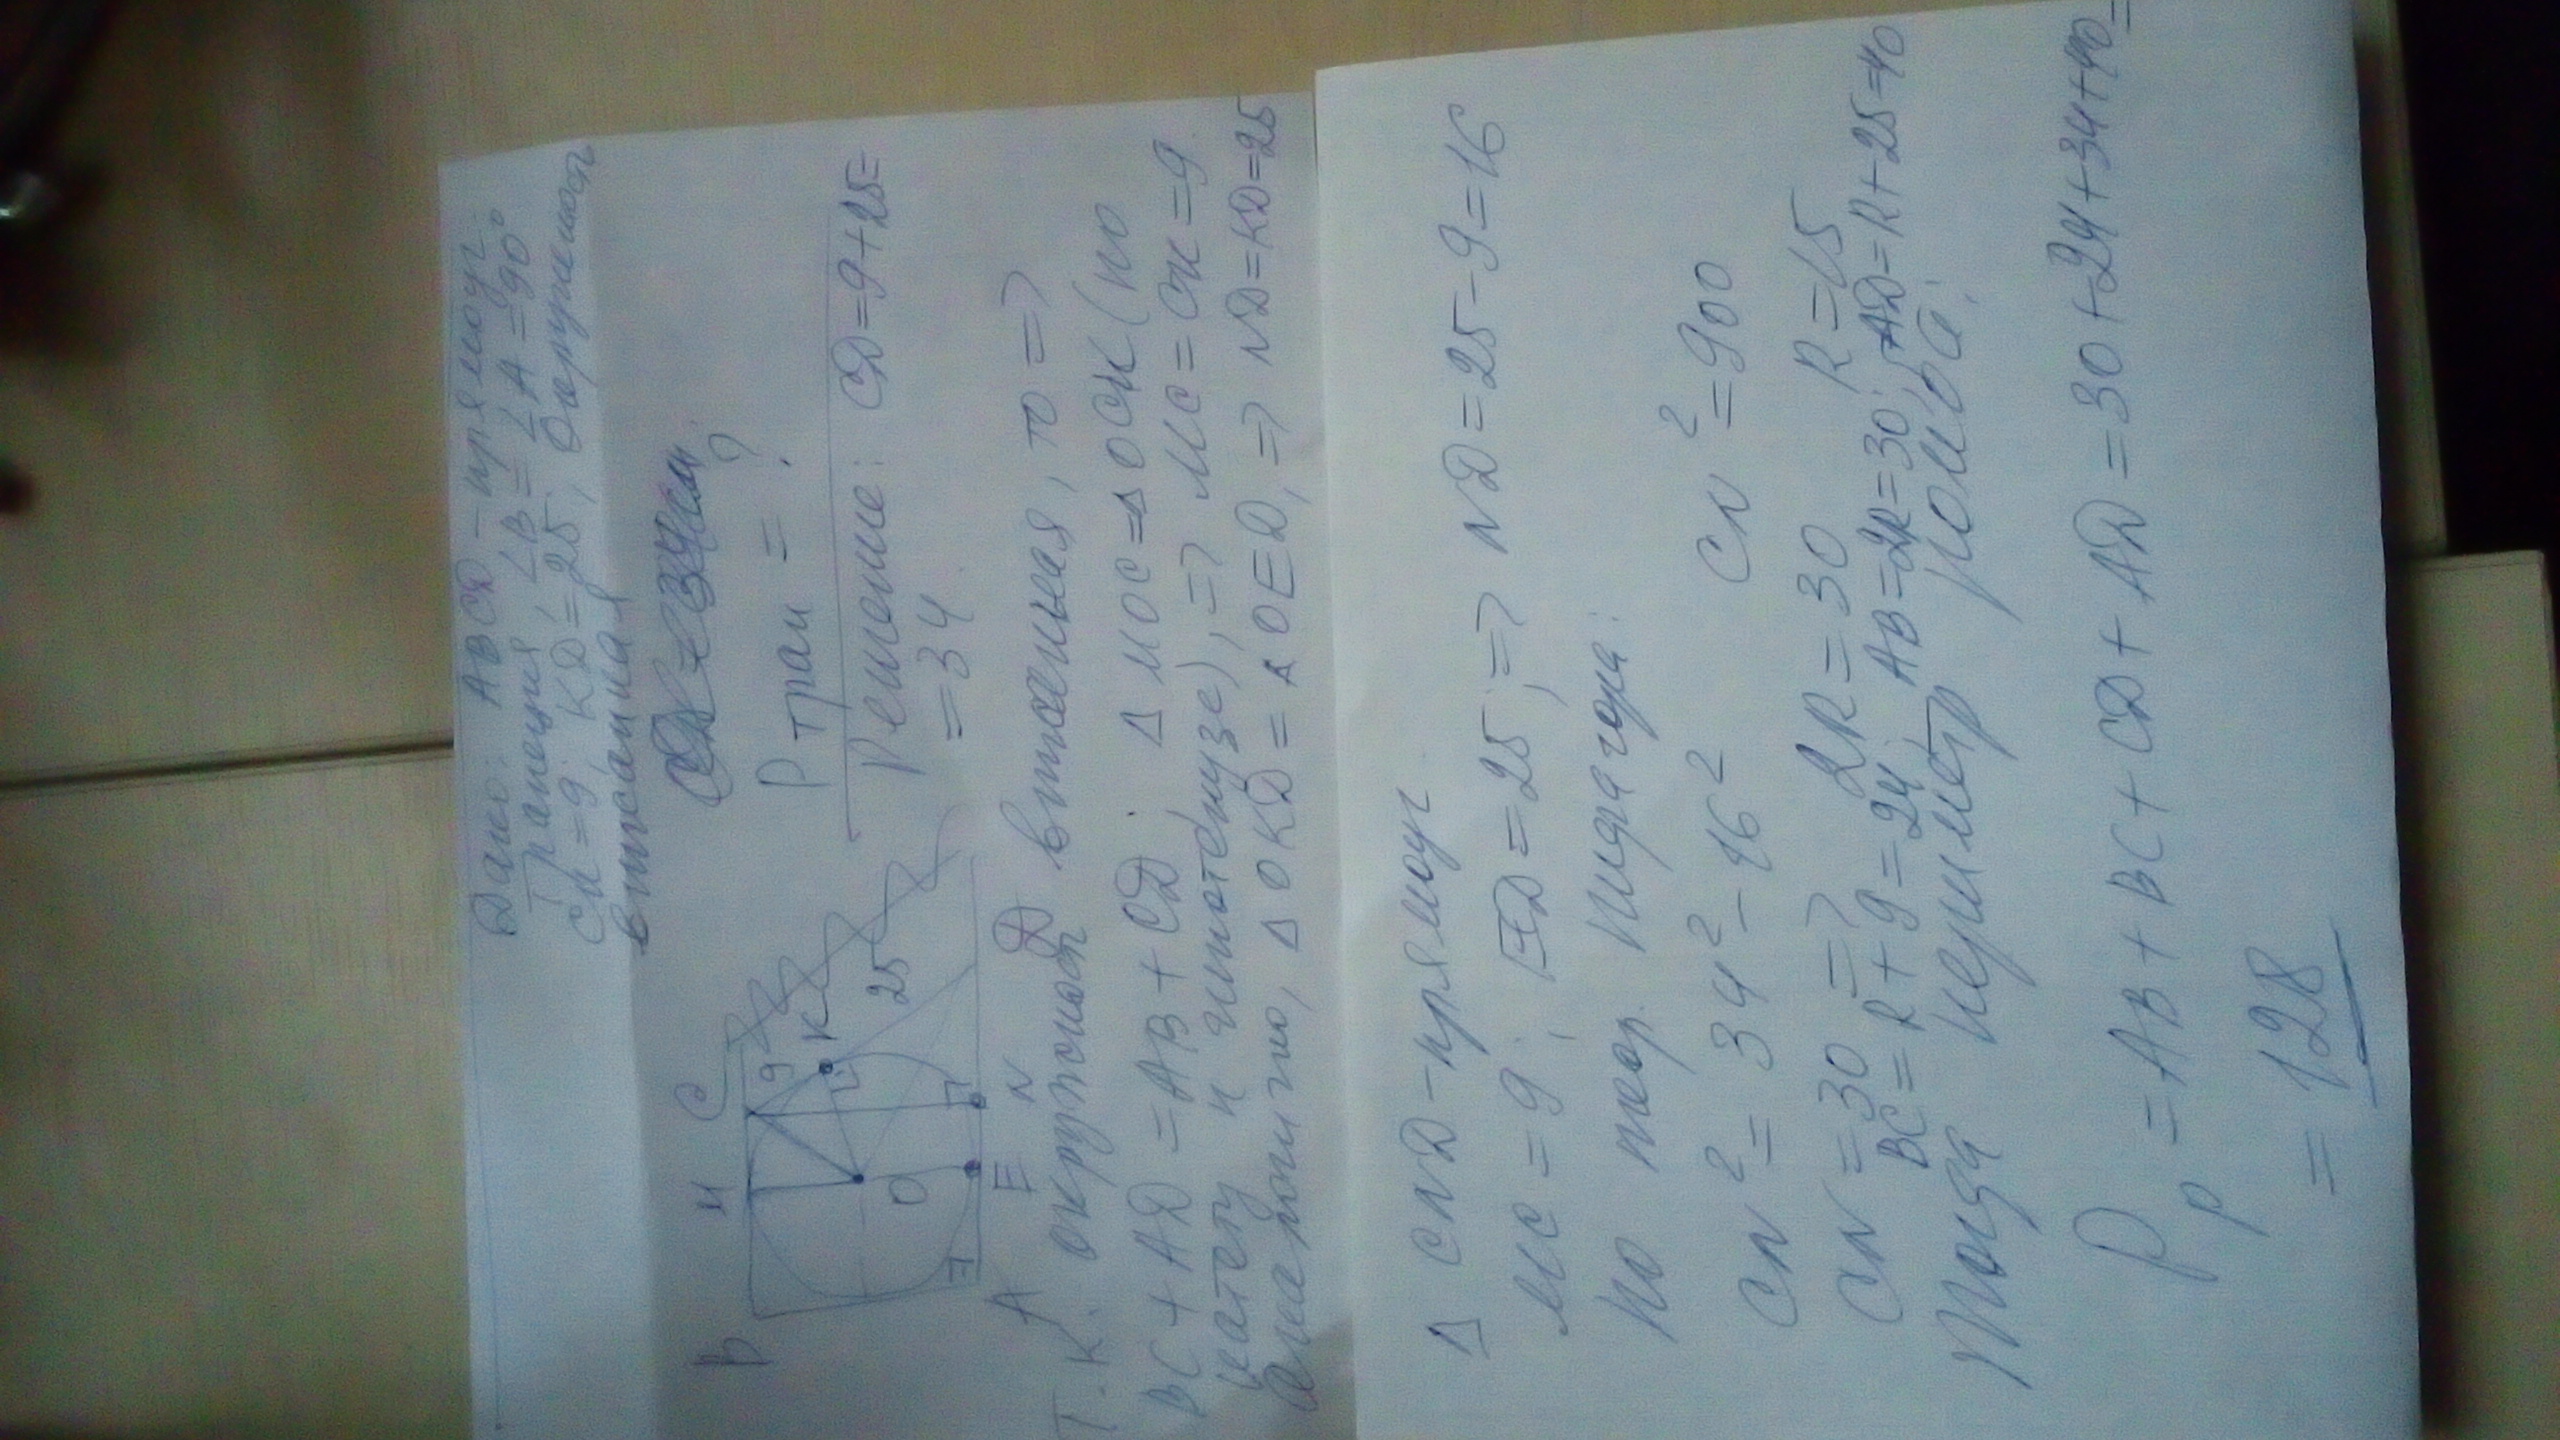 Дано: ABCD - прямоуг.
Трапеция, ∠B = ∠A = 90°
CK = 9; KD = 25; Окружность
вписанная
P трап = ?
Решение: CD = 9 + 25 =
= 34
B M C
9
K
25
O
A E N D
Т.к. окружность вписанная, то =>
BC + AD = AB + CD. Δ MOC = Δ OCK (по
катету и гипотенузе), => MC = CK = 9.
Аналогично, Δ OKD = Δ OED, => ND = KD = 25
Δ CND - прямоуг
MC = 9; ED = 25, => ND = 25 - 9 = 16
По теор. Пифагора:
CN² = 34² - 16² CN² = 900
CN = 30 => 2R = 30 R = 15
BC = R + 9 = 24 AB = 2R = 30; AD = R + 25 = 40
Тогда периметр ромба:
Pр = AB + BC + CD + AD = 30 + 24 + 34 + 40 =
= 128